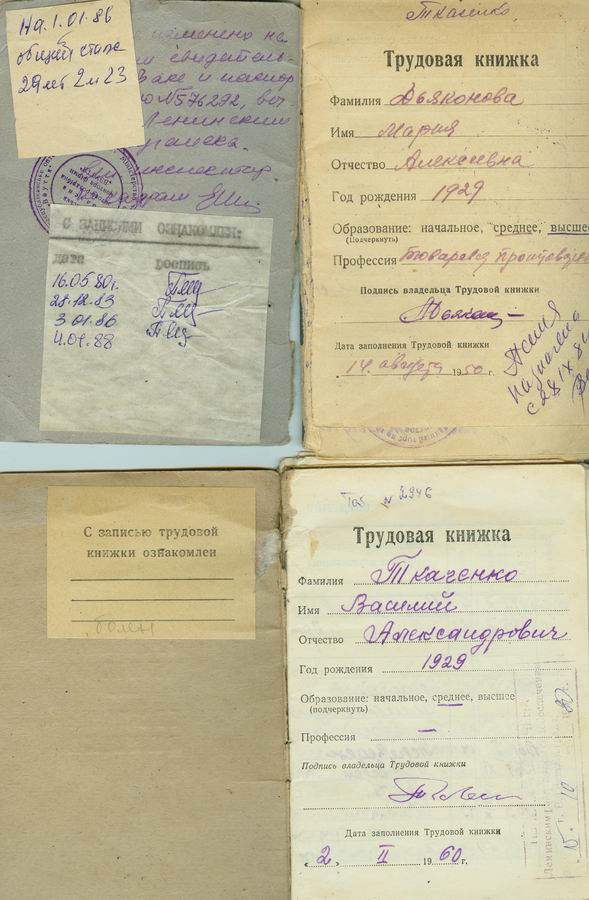 На 1.01.86
общий стаж
29 лет 2 м 23
изменено на
и паспор
№576292, выд
Ленинским
С ЗАПИСЯМИ ОЗНАКОМЛЕН:
дата роспись
16.05.80г.
28.12.83
3.01.86
4.01.88
Ткаченко
Трудовая книжка
Фамилия Дьяконова
Имя Мария
Отчество Алексеевна
Год рождения 1929
Образование: начальное, среднее, высшее
(Подчеркнуть)
Профессия Товаровед
Подпись владельца Трудовой книжки
Дата заполнения Трудовой книжки
14 августа 1950 г.
Пенсия
назначена
с 28 IX 84
С записью трудовой
книжки ознакомлен
Таб. № 2946
Трудовая книжка
Фамилия Ткаченко
Имя Василий
Отчество Александрович
Год рождения 1929
Образование: начальное, среднее, высшее
(подчеркнуть)
Профессия —
Подпись владельца Трудовой книжки
Дата заполнения Трудовой книжки
«2» II 1960 г.